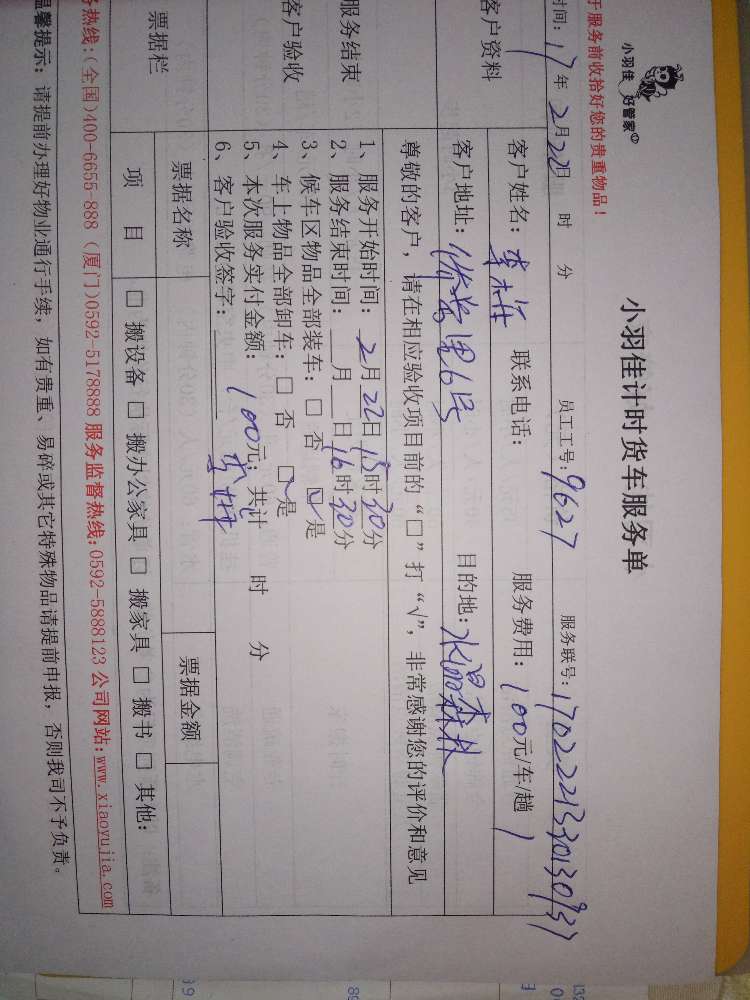 小羽佳 好管家
于服务前收拾好您的贵重物品!
小羽佳计时货车服务单
时间: 17年2月22日 时 分 员工工号: 9627 服务联号:
客户资料
客户姓名: 联系电话: 服务费用: 100元/车/趟
客户地址: 目的地: 水晶森林
尊敬的客户, 请在相应验收项目前的“□”打“√”, 非常感谢您的评价和意见
服务结束
客户验收
1、服务开始时间: 2月22日15时30分
2、服务结束时间: 月 日16时30分
3、候车区物品全部装车: □ 否 ☑ 是
4、车上物品全部卸车: □ 否 ☑ 是
5、本次服务实付金额: 100元; 共计 时 分
6、客户验收签字:
票据栏
票据名称 票据金额
项 目 □ 搬设备 □ 搬办公家具 □ 搬家具 □ 搬书 □ 其他:
务热线:(全国)400-6655-888 (厦门)0592-5178888 服务监督热线:0592-5888123 公司网站:www.xiaoyujia.com
温馨提示: 请提前办理好物业通行手续, 如有贵重、易碎或其它特殊物品请提前申报, 否则我司不予负责。